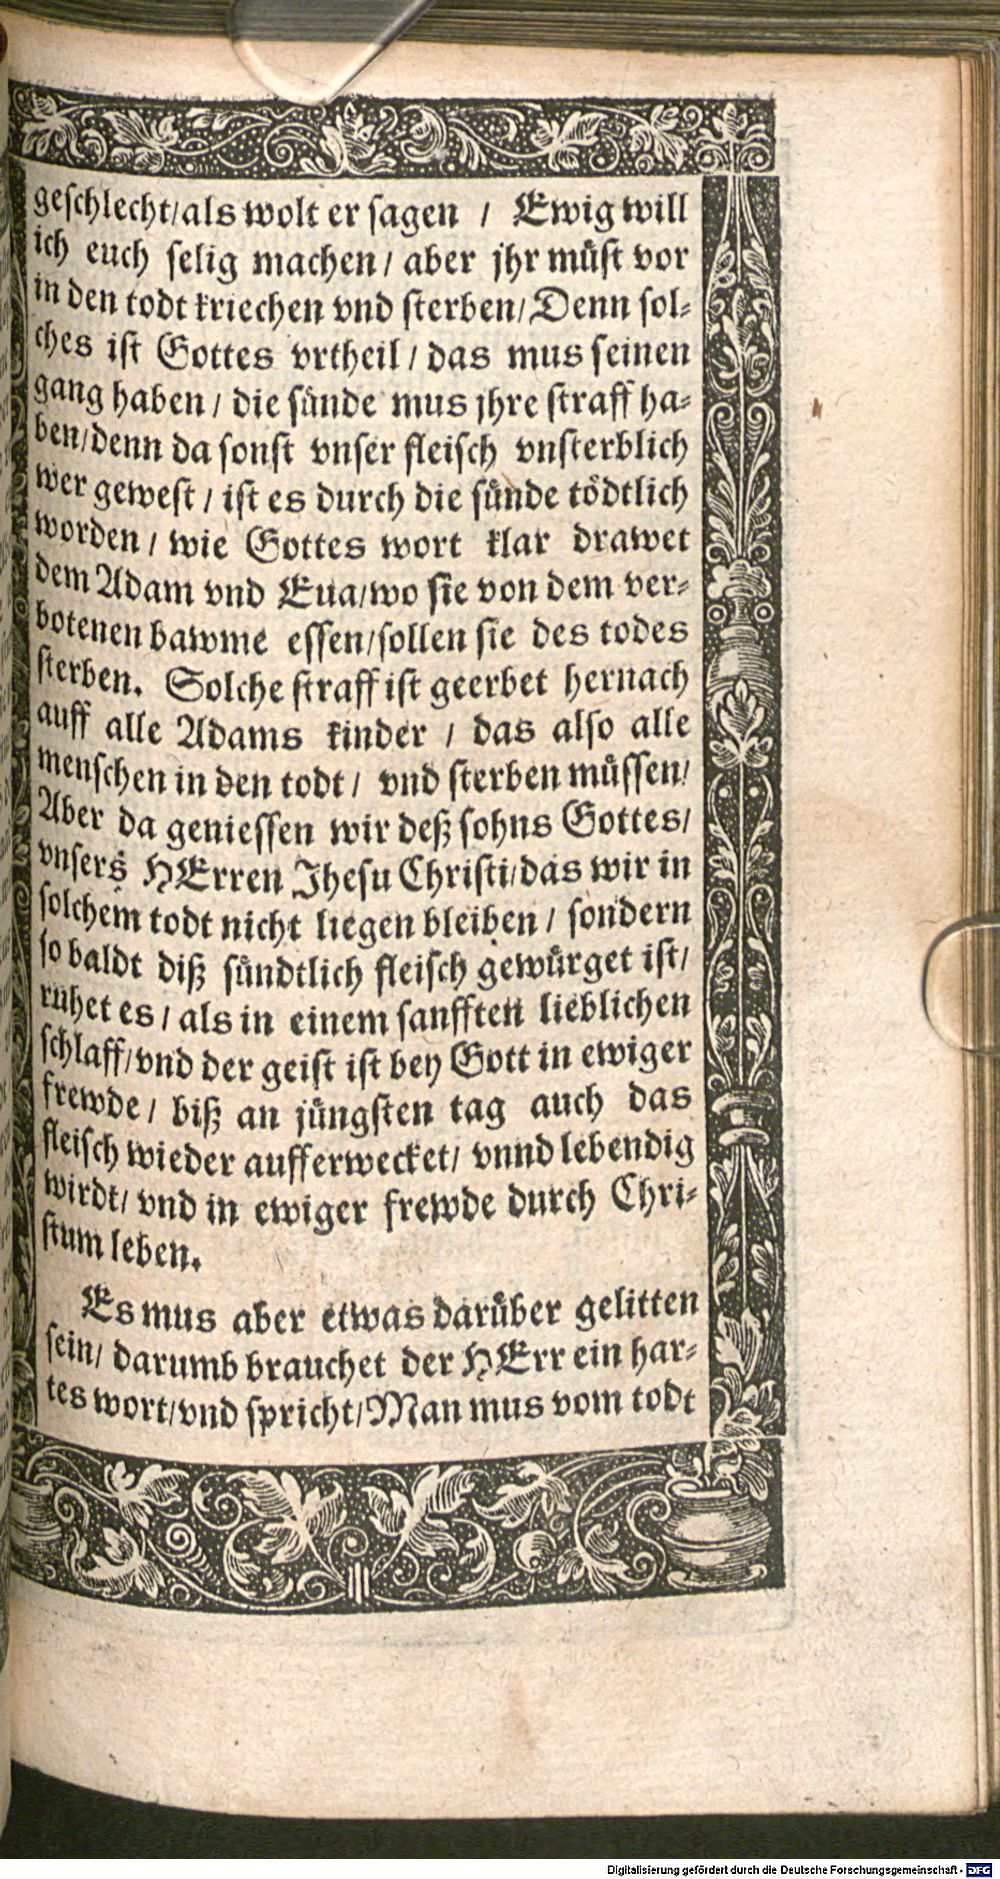 geschlecht/als wolt er sagen / Ewig will
ich euch selig machen/ aber jhr müst vor
in den todt kriechen vnd sterben/Denn sol-
ches ist Gottes vrtheil/ das mus seinen
gang haben/ die sünde mus jhre straff ha-
ben/denn da sonst vnser fleisch vnsterblich
wer gewest/ ist es durch die sünde tödtlich
worden/ wie Gottes wort klar drawet
dem Adam vnd Eua/wo sie von dem ver-
botenen bawme essen/sollen sie des todes
sterben. Solche straff ist geerbet hernach
auff alle Adams kinder / das also alle
menschen in den todt/ vnd sterben müssen/
Aber da geniessen wir deß sohns Gottes/
vnsers HErren Jhesu Christi/das wir in
solchem todt nicht liegen bleiben/ sondern
so baldt diß sündtlich fleisch gewürget ist/
ruhet es/ als in einem sanfften lieblichen
schlaff/vnd der geist ist bey Gott in ewiger
frewde/ biß an jüngsten tag auch das
fleisch wieder aufferwecket/ vnnd lebendig
wirdt/ vnd in ewiger frewde durch Chri-
stum leben.
Es mus aber etwas darüber gelitten
sein/ darumb brauchet der HErr ein har-
tes wort/vnd spricht/Man mus vom todt
Digitalisierung gefördert durch die Deutsche Forschungsgemeinschaft - DFG